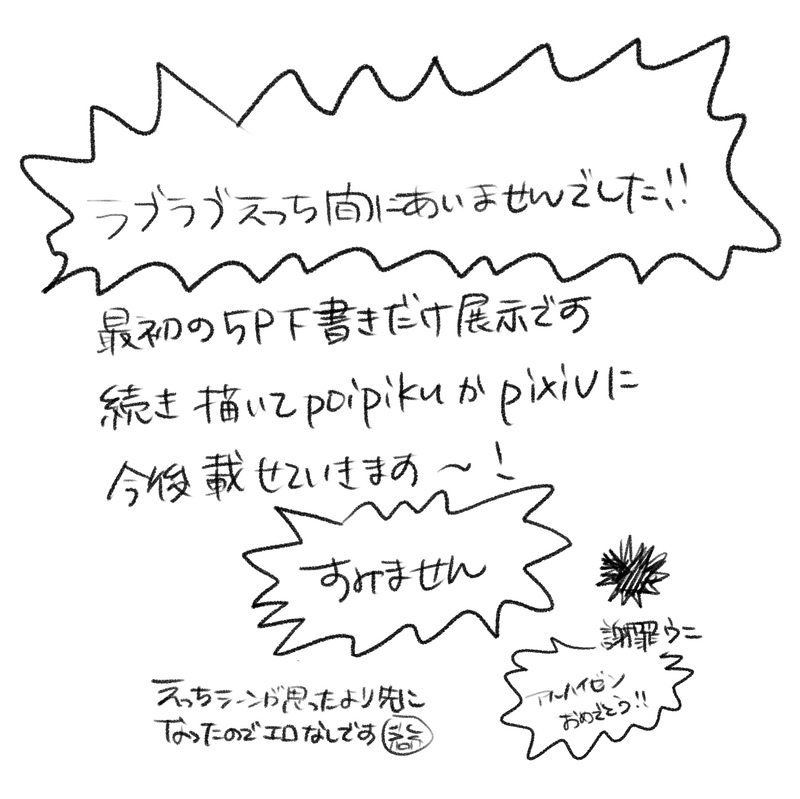 ラブラブえっち間にあいませんでした!!
最初の5P下書きだけ展示です
続き描いてpoipikuかpixivに
今後載せていきます〜!
すみません
謝罪ウニ
アルハイゼン
おめでとう!!
えっちシーンが思ったより先に
なったのでエロなしです